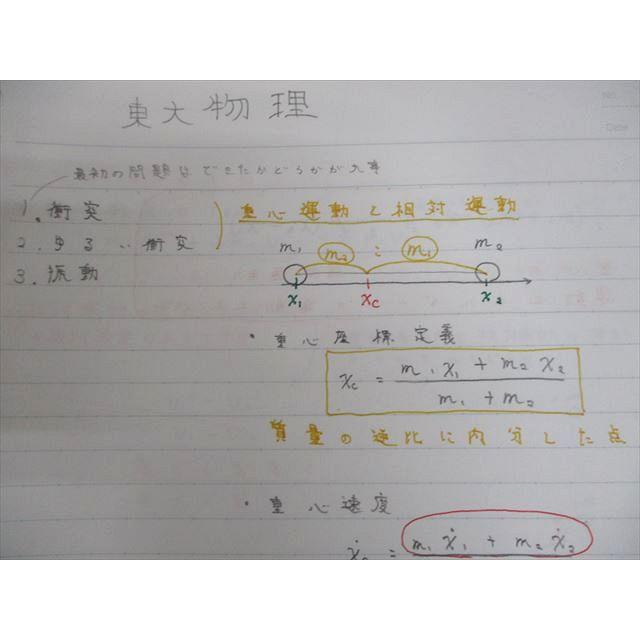 東大物理
No.
Date
最初の問題はできたかどうかが大事
1. 衝突
2. ゆるい衝突
3. 振動
重心運動と相対運動
m₁ m₂ : m₁ m₂
x₁ x_c x₂
・重心座標定義
x_c = (m₁x₁ + m₂x₂) / (m₁ + m₂)
質量の逆比に内分した点
・重心速度
ẋ_c = m₁ẋ₁ + m₂ẋ₂